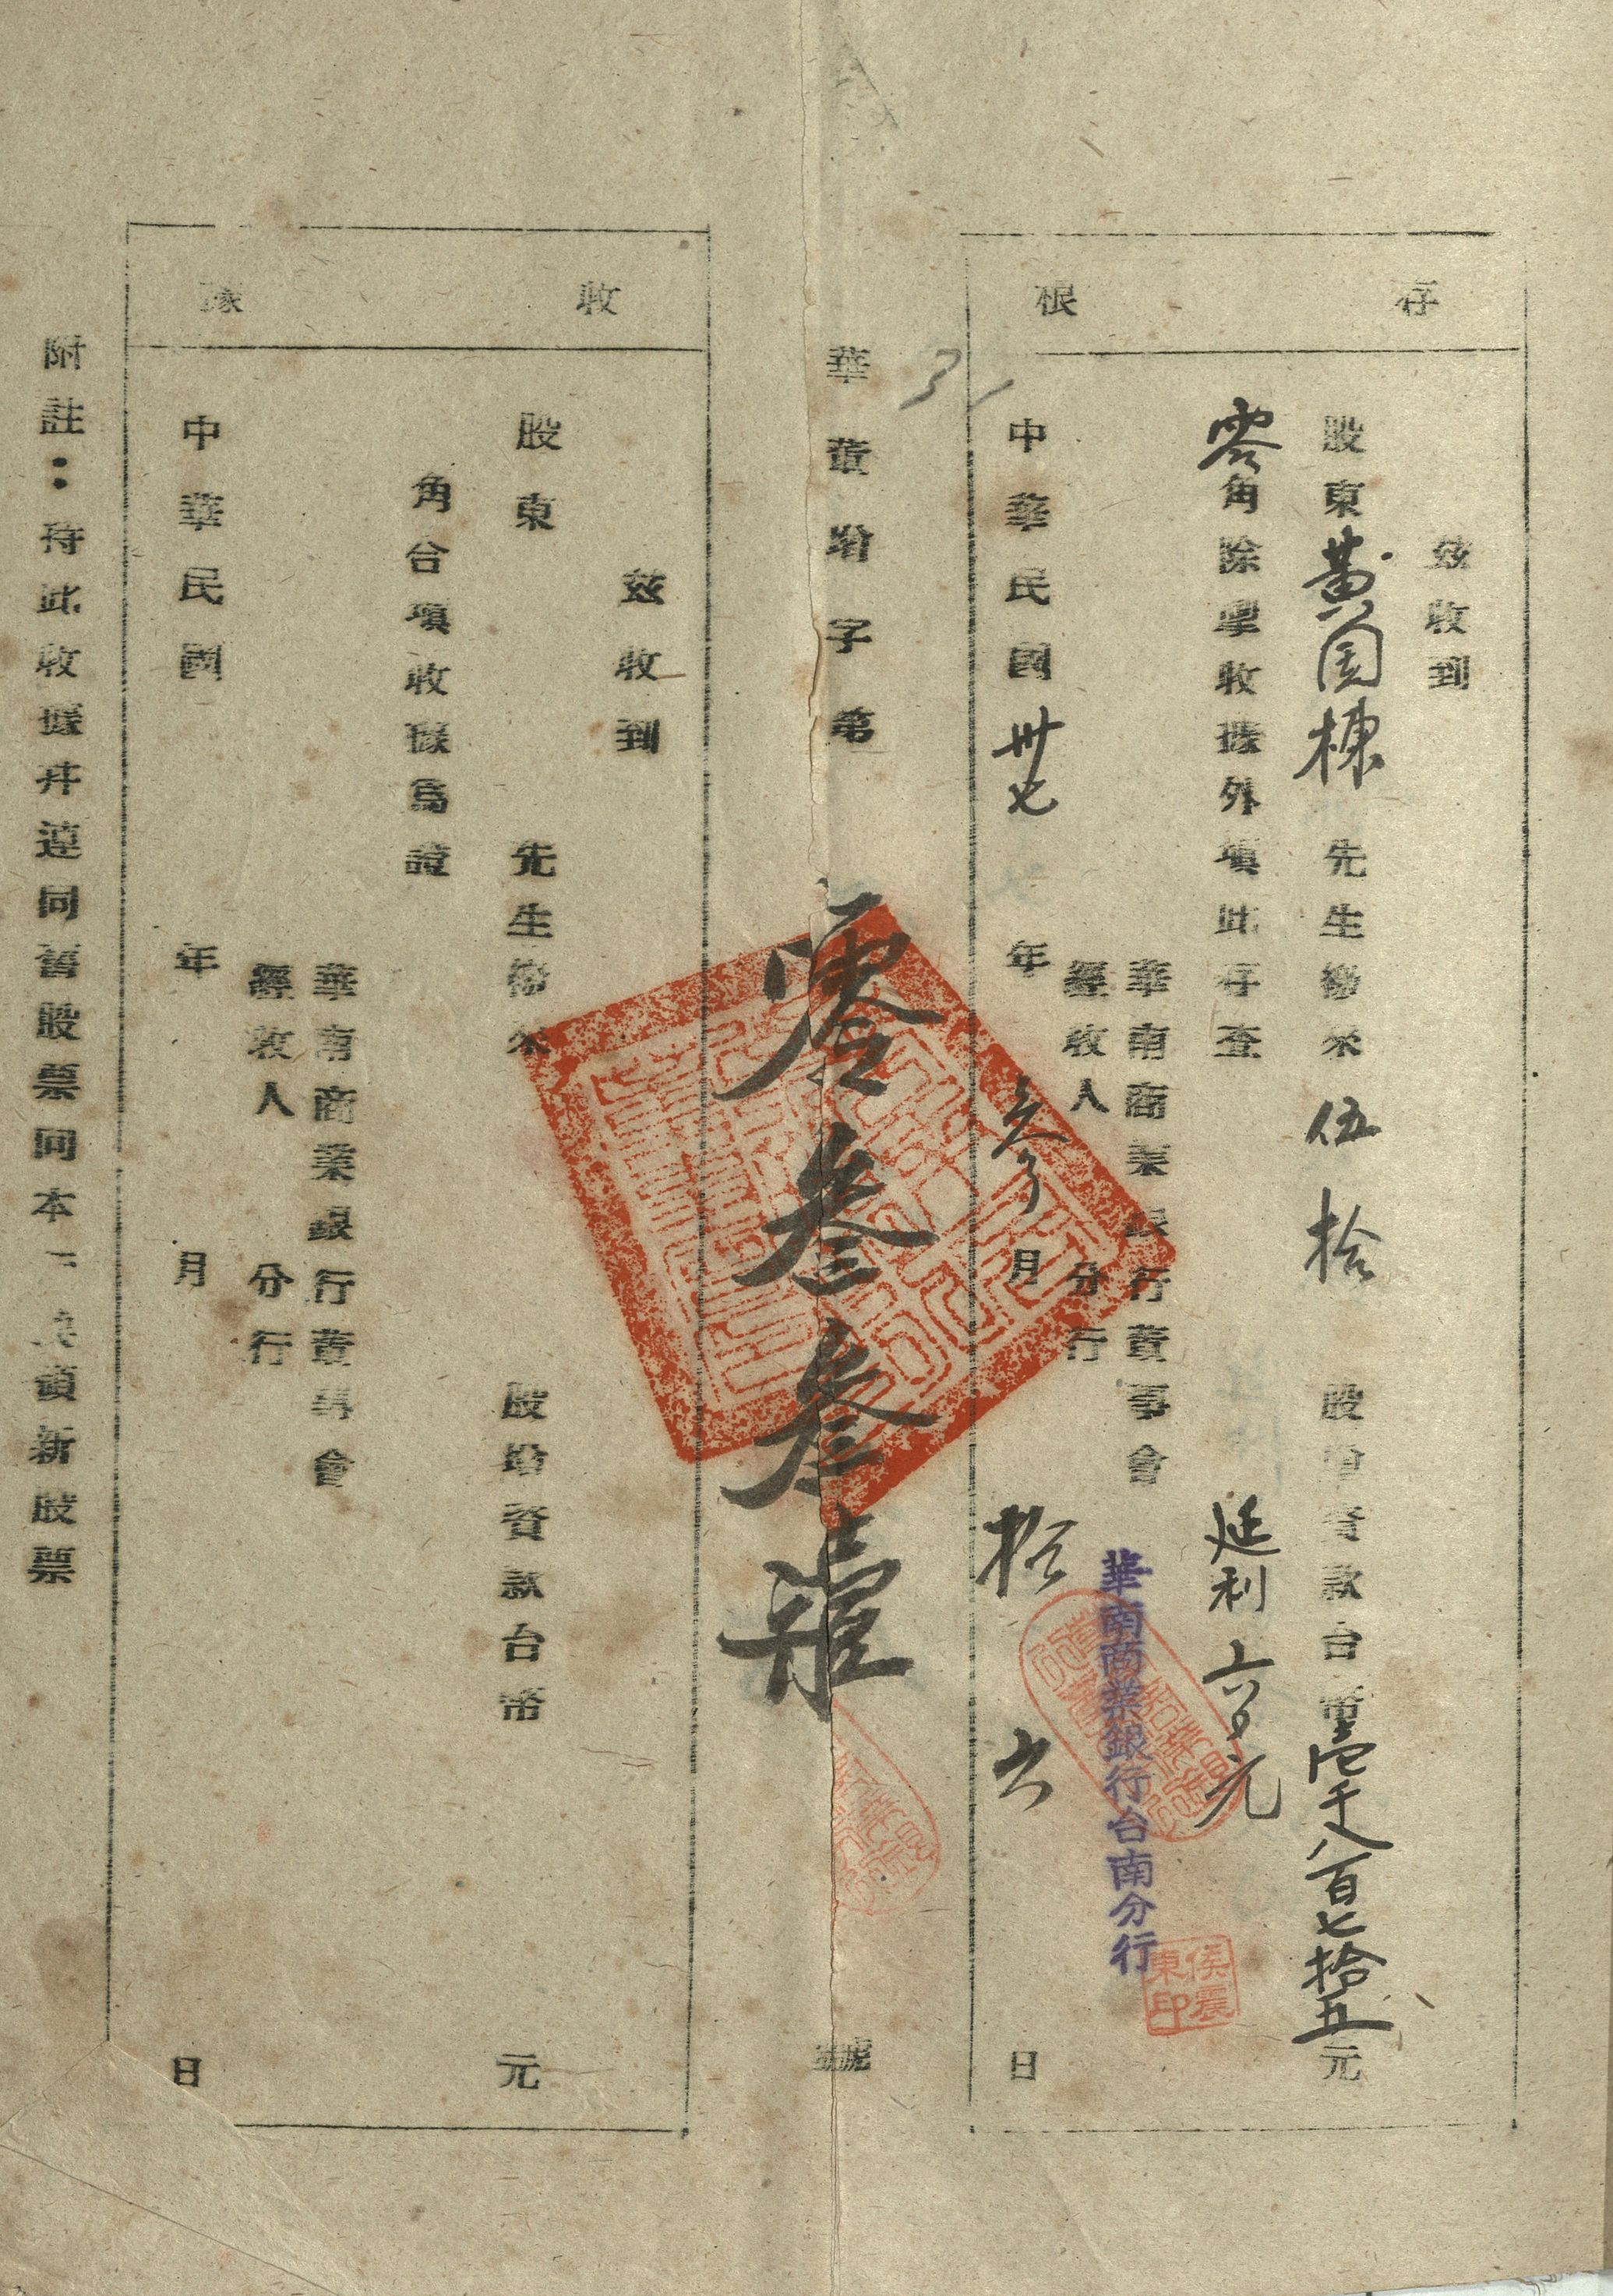 存根
茲收到
股東黃國棟先生繳來伍拾股增資款台幣壹千八百七拾五元
零角除掣收據外填此存查
延利六百元
華南商業銀行董事會
經收人 分行
華南商業銀行台南分行
侯震東印
中華民國卅七年參月拾六日
31
華董增字第零叁叁壹號
收據
茲收到
股東 先生繳來 股增資款台幣 元
角合填收據為證
華南商業銀行董事會
經收人 分行
中華民國 年 月 日
附註：持此收據并連同舊股票向本行換領新股票